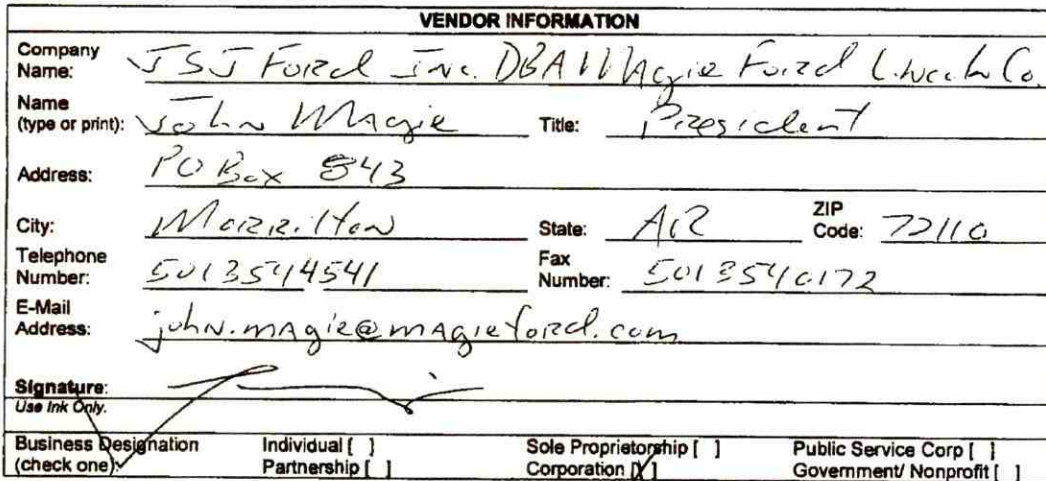 VENDOR INFORMATION
Company Name: JSJ Ford Inc. DBA Magie Ford Lincoln Co.
Name (type or print): John Magie Title: President
Address: PO Box 843
City: Morrilton State: AR ZIP Code: 72110
Telephone Number: 5013544541 Fax Number: 5013540172
E-Mail Address: john.magie@magieford.com
Signature:
Use Ink Only.
Business Designation Individual [ ] Sole Proprietorship [ ] Public Service Corp [ ]
(check one): Partnership [ ] Corporation [X] Government/ Nonprofit [ ]